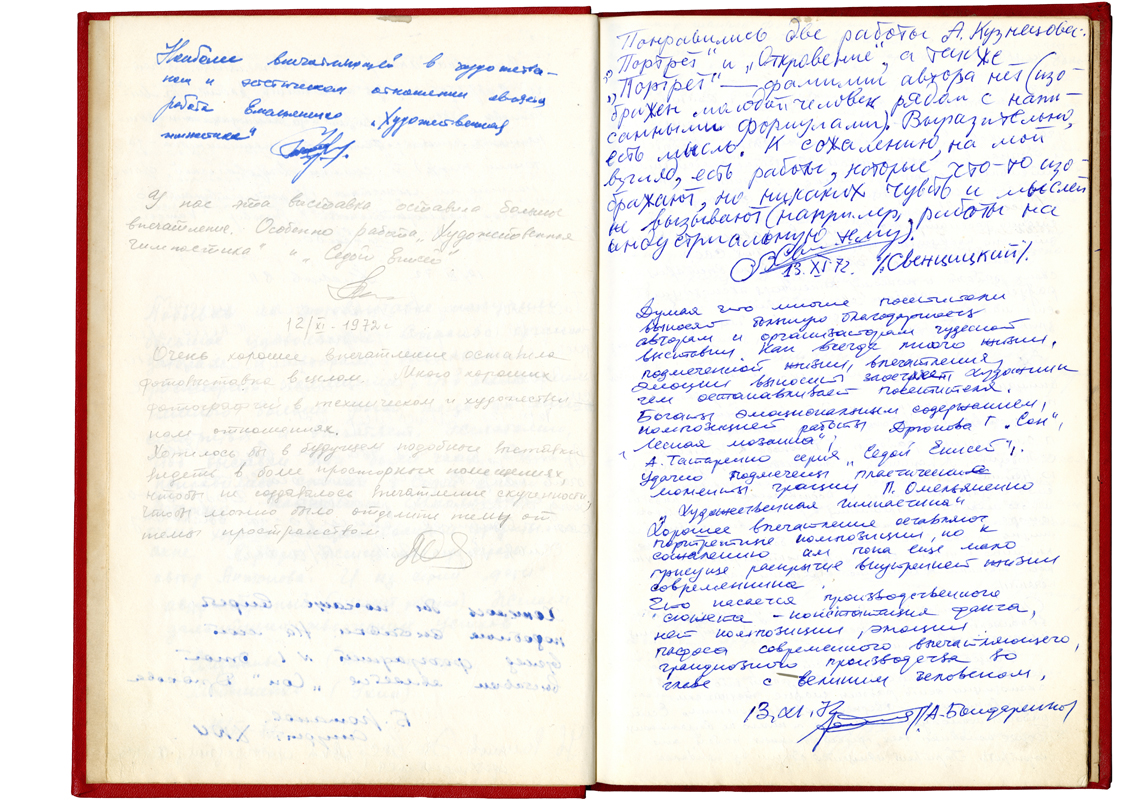 Наиболее впечатляющей в художестве-
ном и эстетическом отношении является
работа "Художественная
гимнастика"
У нас эта выставка оставила большое
впечатление. Особенно работа "Художественная
гимнастика" и "Седой Енисей"
12/XI-1972 г
Очень хорошее впечатление оставила
фотовыставка в целом. Много хороших
фотографий в техническом и художествен-
ном отношениях.
Хотелось бы в будущем подобные выставки
видеть в более просторных помещениях,
чтобы не создавалось впечатление скученности,
чтобы можно было отделить тему от
темы пространством
Понравились две работы А. Кузнецова:
"Портрет" и "Откровение", а также
"Портрет" — фамилии автора нет (изо-
бражен молодой человек рядом с напи-
санными формулами). Выразительно,
есть мысль. К сожалению, на мой
взгляд, есть работы, которые что-то изо-
бражают, но никаких чувств и мыслей
не вызывают (например, работы на
индустриальную тему).
13.XI.72. /Свенцицкий/.
Думаю что многие посетители
выносят большую благодарность
авторам и организаторам чудесной
выставки. Как всегда много жизни,
подмеченной жизни, впечатления,
эмоции выносит художники
чем останавливает посетителя.
Богаты эмоциональным содержанием,
композицией работы Г. "Сон",
"Лесная мозаика",
А. Татаренко серия "Седой Енисей".
Удачно подмечены пластические
моменты грации П. Омельяненко
"Художественная гимнастика"
Хорошее впечатление оставляют
портретные композиции, но к
сожалению им пока еще мало
присуще раскрытие внутренней жизни
современника
Что касается производственного
сюжета - констатация факта,
нет композиции, эмоции
пафоса современного впечатляющего,
грандиозного производства во
главе с великим человеком.
13.XI.72 /А. Бондаренко/